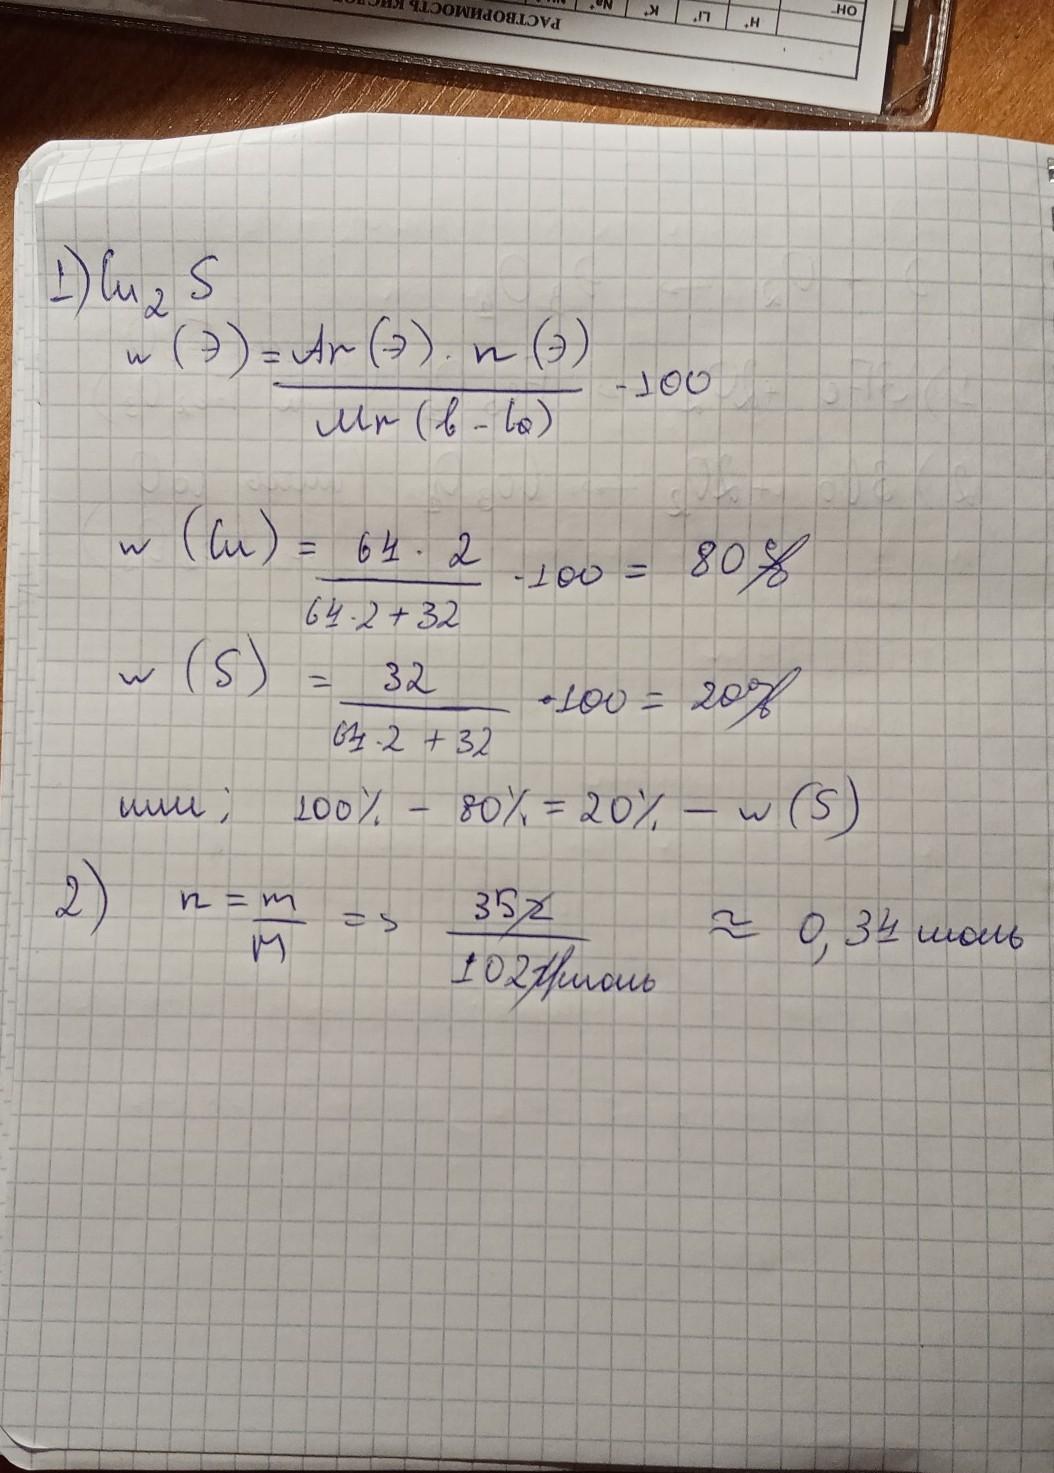 РАСТВОРИМОСТЬ КИСЛО
Na⁺ K⁺ Li⁺ H⁺
OH⁻
1) Cu₂S
w (Э) = Ar(Э) · n(Э) / Mr (в-ва) · 100
w (Cu) = 64 · 2 / 64·2+32 · 100 = 80%
w (S) = 32 / 64·2 + 32 · 100 = 20%
или; 100% - 80% = 20% - w (S)
2) n = m / M => 35г / 102г/моль ≈ 0,34 моль